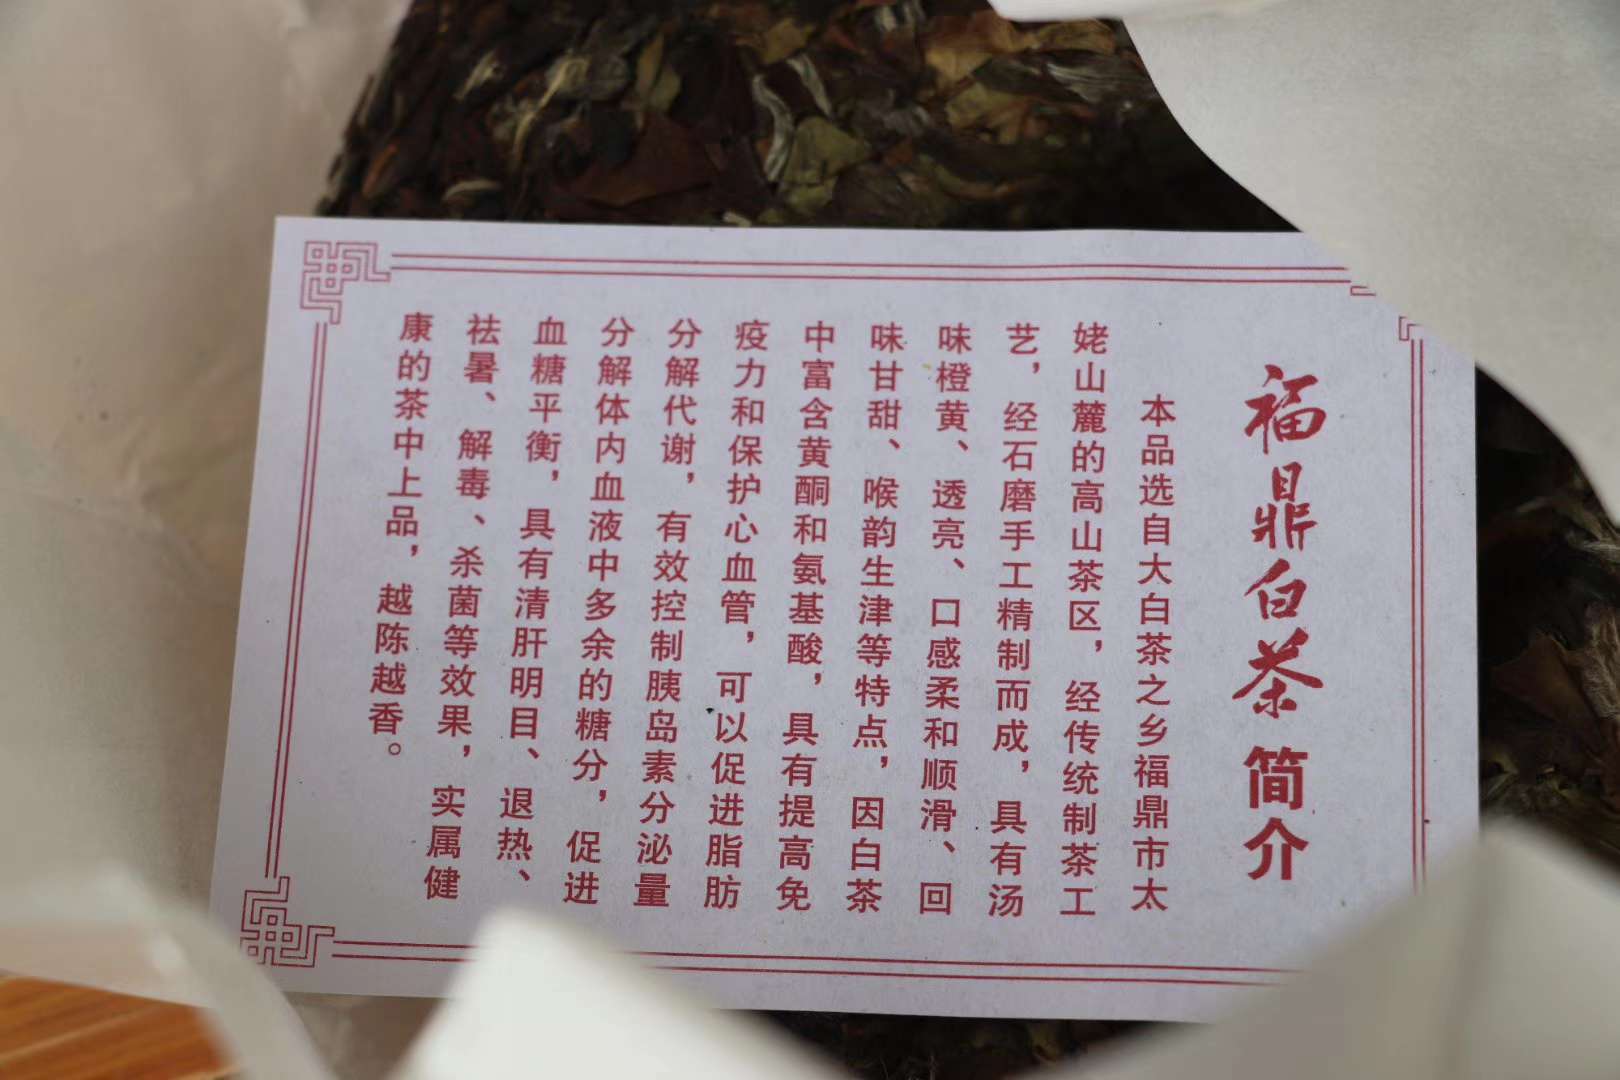 福鼎白茶简介
本品选自大白茶之乡福鼎市太
姥山麓的高山茶区，经传统制茶工
艺，经石磨手工精制而成，具有汤
味橙黄、透亮、口感柔和顺滑、回
味甘甜、喉韵生津等特点，因白茶
中富含黄酮和氨基酸，具有提高免
疫力和保护心血管，可以促进脂肪
分解代谢，有效控制胰岛素分泌量
分解体内血液中多余的糖分，促进
血糖平衡，具有清肝明目、退热、
祛暑、解毒、杀菌等效果，实属健
康的茶中上品，越陈越香。